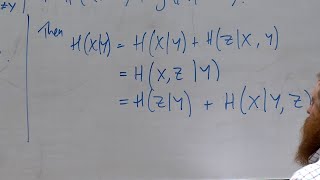 ≠y
Then
H(X|Y) = H(X|Y) + H(Z|X, Y)
= H(X, Z|Y)
= H(Z|Y) + H(X|Y, Z)